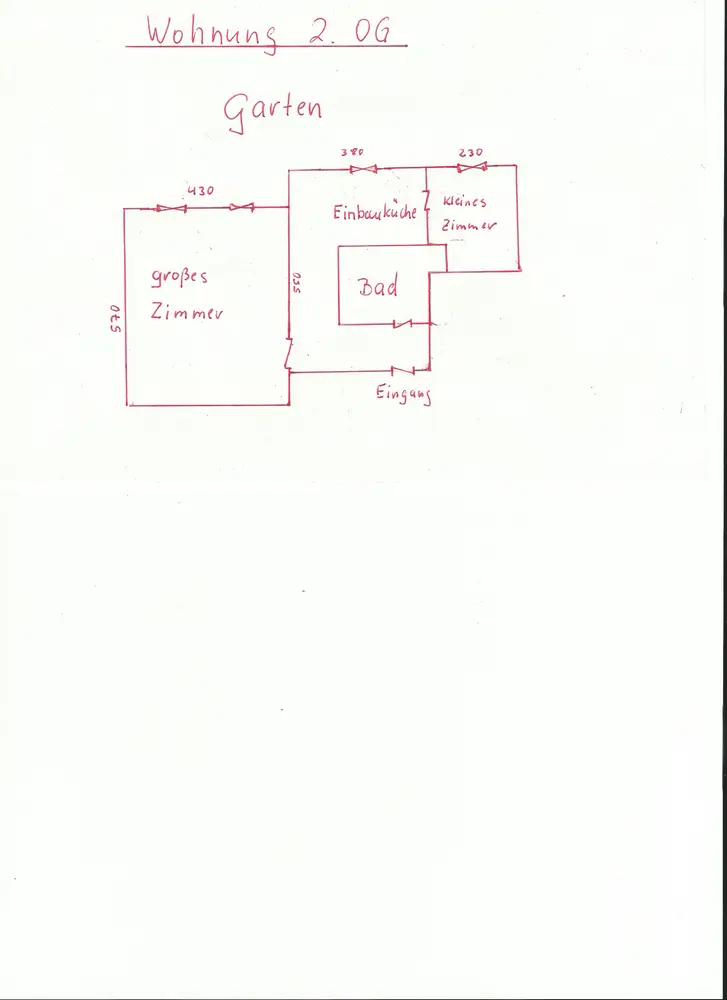 Wohnung 2. OG
Garten
380
230
430
Einbauküche
kleines
Zimmer
großes
Zimmer
550
Bad
570
Eingang